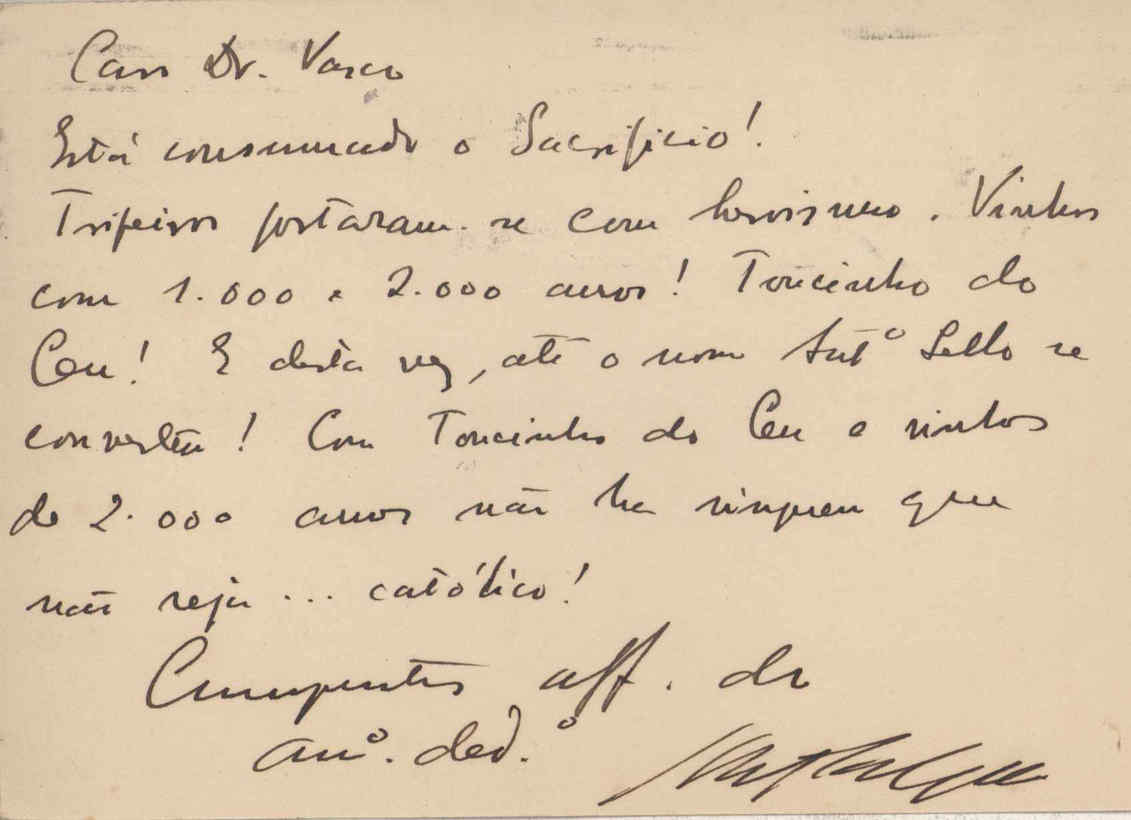 Caro Dr. Vasco
Está consumado o Sacrificio!
Tripeiros portaram-se com heroismo. Vinhos
com 1.000 e 2.000 anos! Toucinho do
Ceu! E desta vez, até o nom Antº Sello se
converteu! Com Toucinho do Ceu e vinhos
de 2.000 anos não ha ninguem que
não seja ... católico!
Cumprimentos aff. do
amº. dedº.